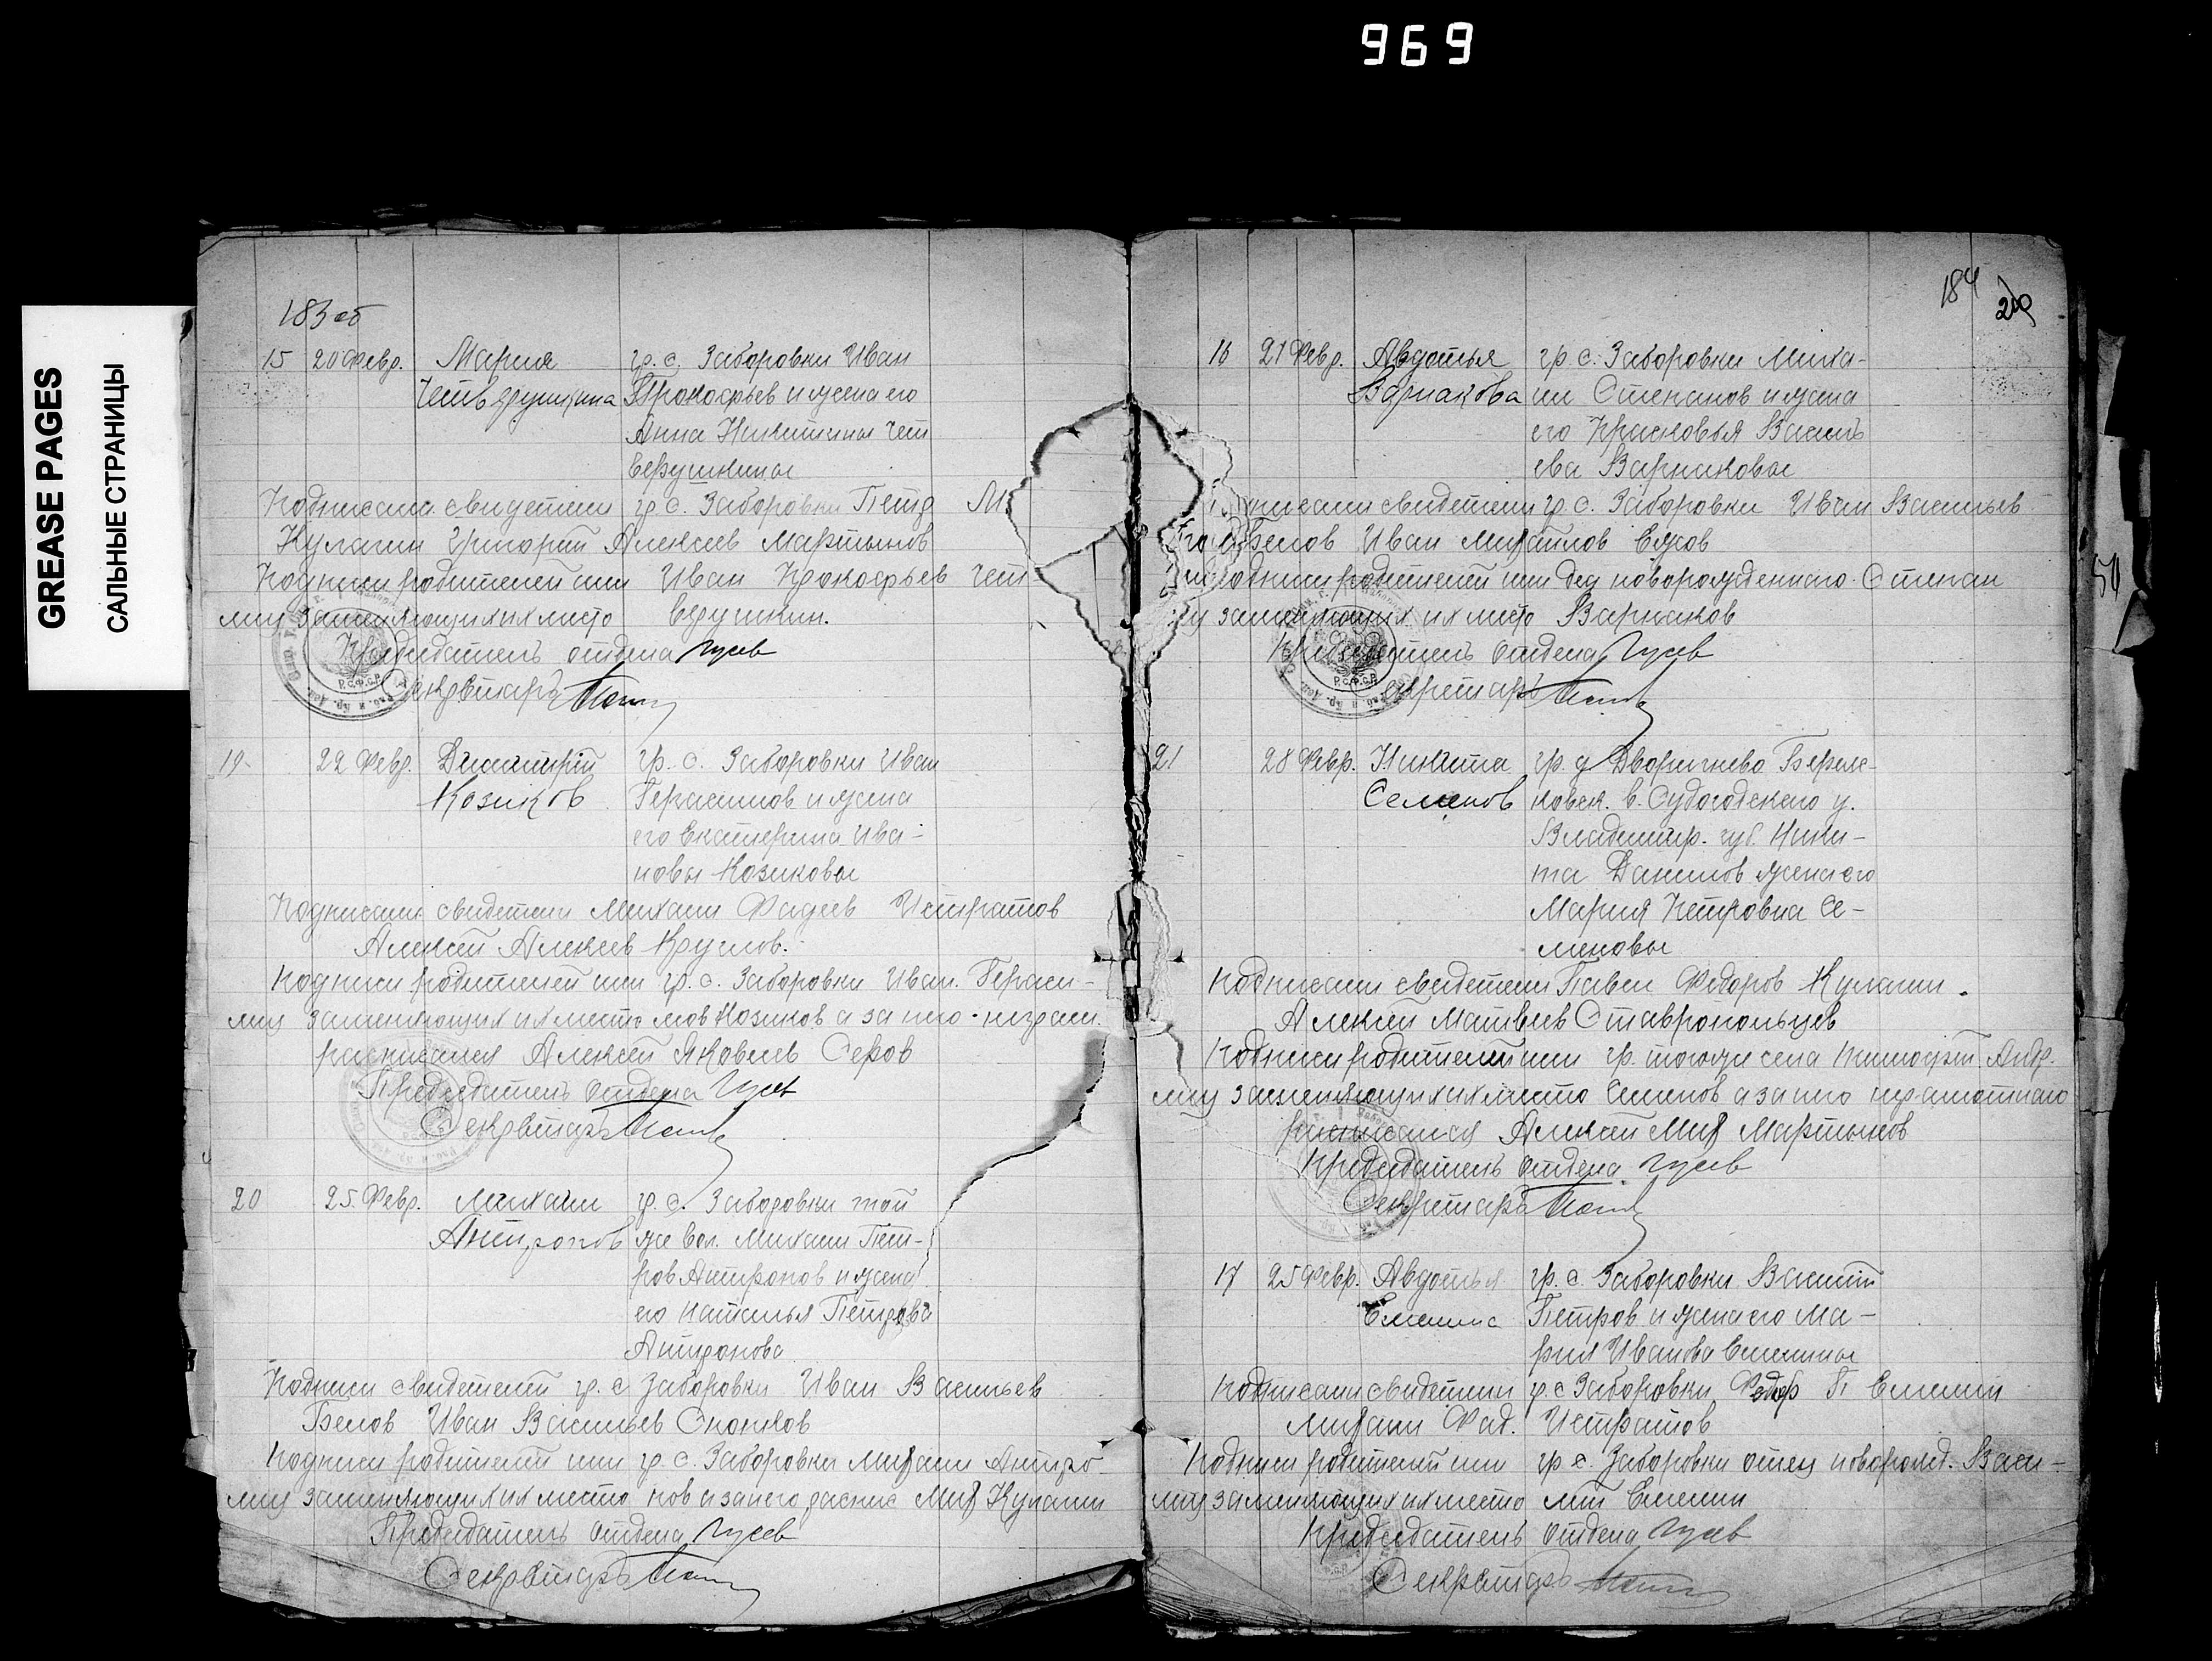 969
GREASE PAGES
САЛЬНЫЕ СТРАНИЦЫ
183 об
15 20 Февр. Мария гр. с. Заборовки Иван
Четверушкина Прокофьев и жена его
Анна Никитины Чет
верушкины
Подписали свидетели гр. с. Заборовки Петр М
Кулагин Григорий Алексеев Мартынов
Подписи родителей или Иван Прокофьев Чет-
лиц заменяющих их место верушкин.
Председатель отдела Гусев
Секретарь
19 22 Февр. Димитрий гр. с. Заборовки Иван
Козиков Герасимов и жена
его Екатерина Ива-
новы Козиковы
Подписали свидетели Михаил Фадеев Истратов
Алексей Алексеев Круглов.
Подписи родителей или гр. с. Заборовки Иван Гераси-
лиц заменяющих их место мов Козиков а за него неграм.
расписался Алексей Яковлев Серов
Председатель отдела Гусев
Секретарь
20 25 Февр. Михаил гр. с. Заборовки той
Антропов же вол. Михаил Пет-
ров Антропов и жена
его Наталья Петрова
Антропова
Подписи свидетелей гр. с Заборовки Иван Васильев
Белов Иван Васильев
Подписи родителей или гр. с. Заборовки Михаил Антро-
лиц заменяющих их место пов а за него распис Мих Кулагин
Председатель отдела Гусев
Секретарь
184
209
16 21 Февр. Авдотья гр с. Заборовки Миха-
Варнакова ил Степанов и жена
его Прасковья Василь
ева Варнаковы
писали свидетели гр. с. Заборовки Иван Васильев
Белов Иван Михайлов Ежов
Подписи родителей или дед новорожденного Степан
лиц заменяющих их место Варнаков
Председатель отдела Гусев
Секретарь
21 28 Февр. Никита гр. д. Дворишнево Береж-
Семенов ковск. в. Судогодского у.
Владимир. губ. Ники-
та Данилов жена его
Мария Петровна Се-
меновы
Подписали свидетели Павел Федоров Кулагин.
Алексей Матвеев Ставропольцев
Подписи родителей или гр. того же села Тимофей Андр.
лиц заменяющих их место Семенов а за него неграмотного
расписался Алексей Мих Мартынов
Председатель отдела Гусев
Секретарь
17 25 Февр. Авдотья гр. с. Заборовки Василий
Емелина Петров и жена его Ма-
рия Иванова Емелины
Подписали свидетели гр. с Заборовки Федор П Емелин
Михаил Фад. Истратов
Подписи родителей или гр с. Заборовки отец новорожд. Васи-
лиц заменяющих их место лий Емелин
Председатель отдела Гусев
Секретарь
50
Р.С.Ф.С.Р.
Р.С.Ф.С.Р.